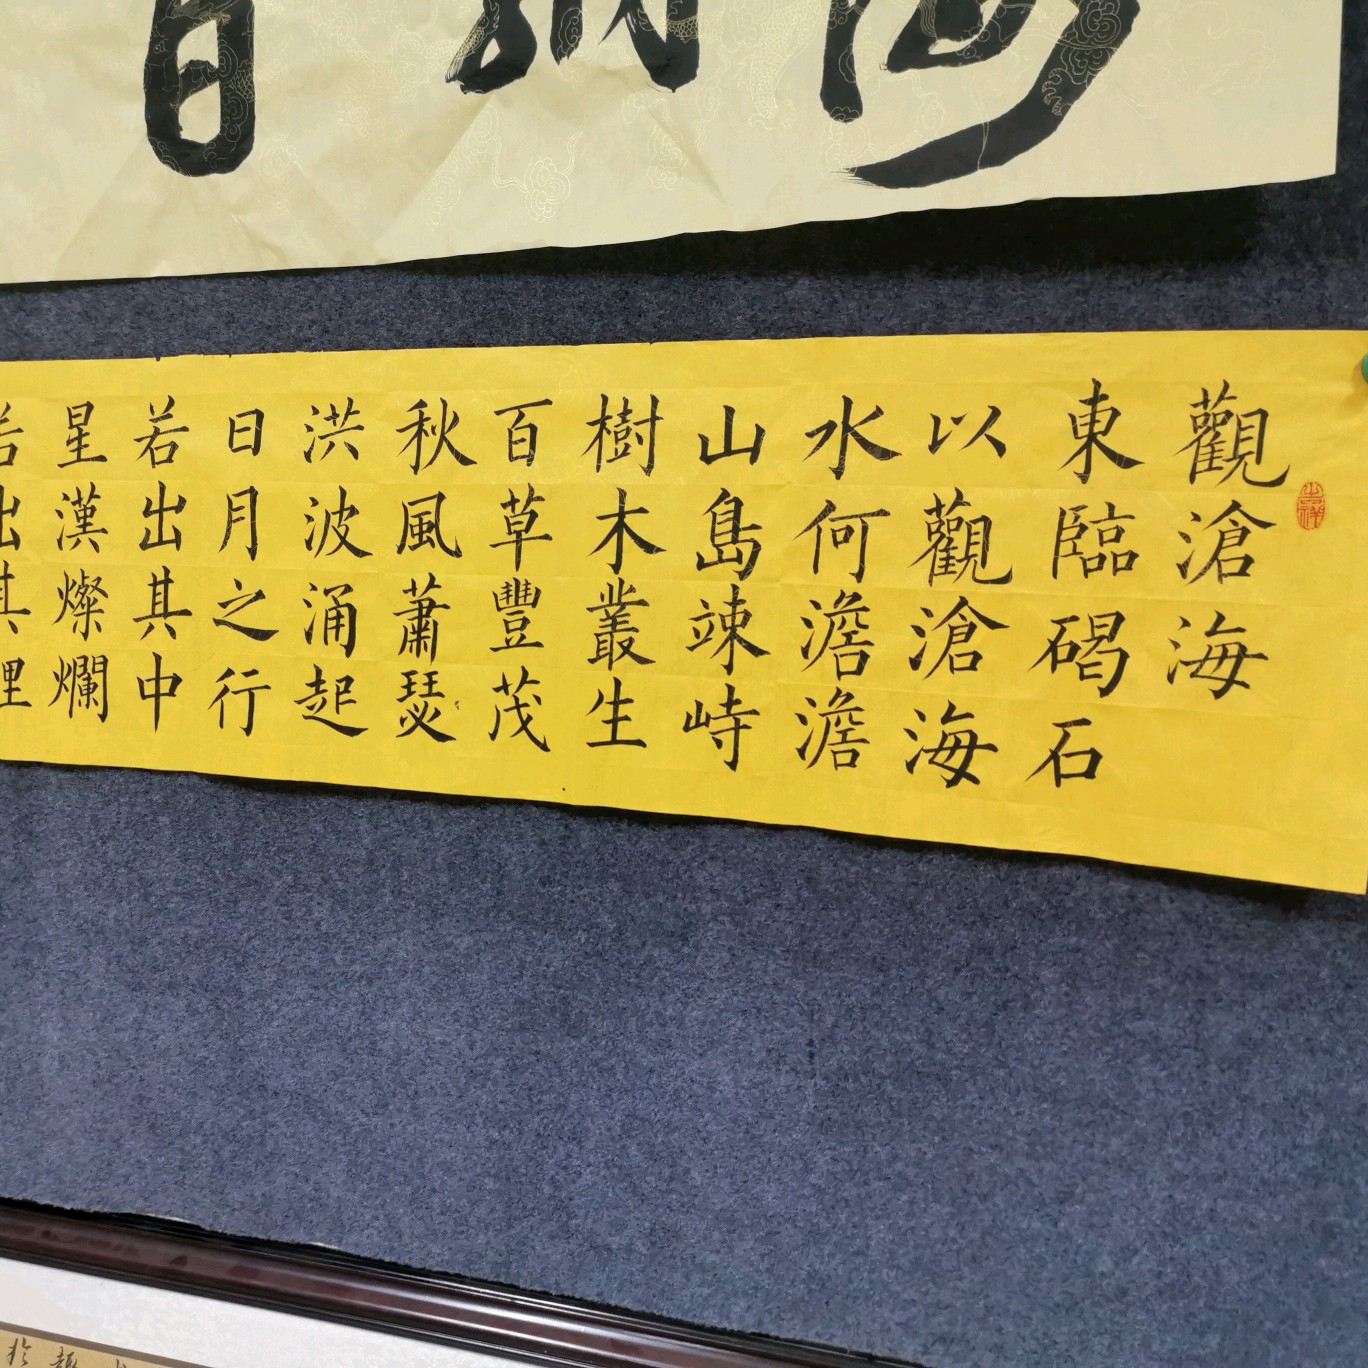 海納百
觀滄海
東臨碣石
以觀滄海
水何澹澹
山島竦峙
樹木叢生
百草豐茂
秋風蕭瑟
洪波涌起
日月之行
若出其中
星漢燦爛
若出其裡
吉祥